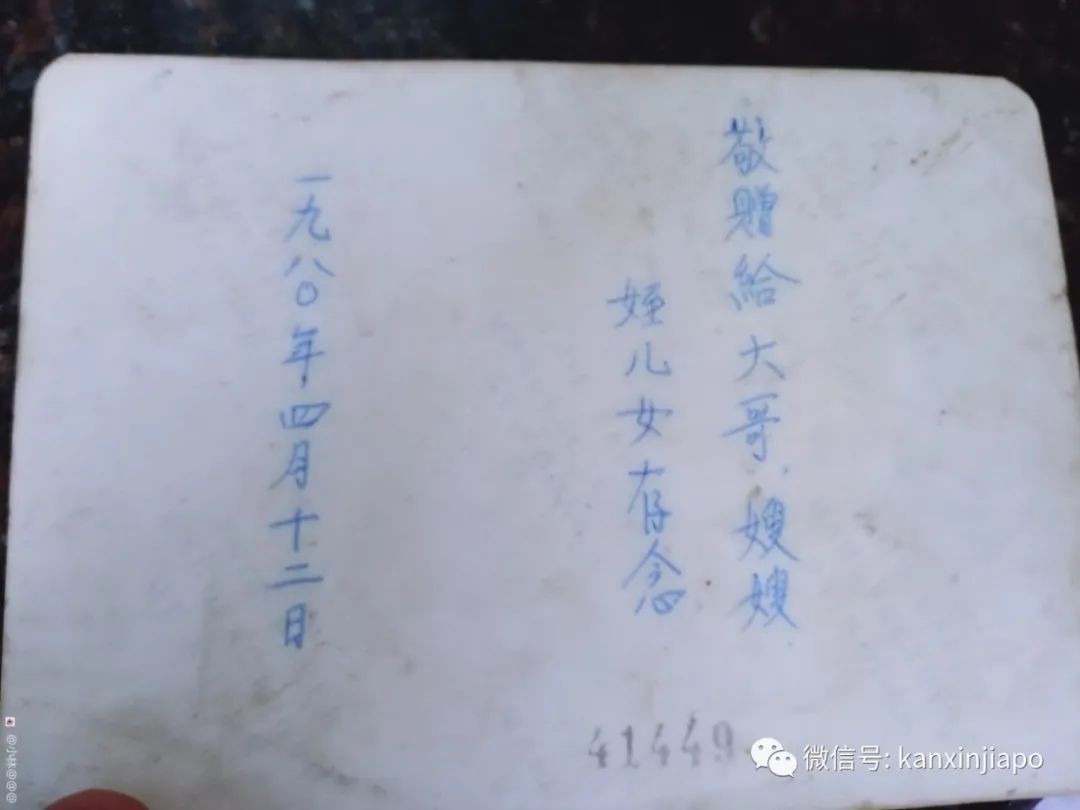 敬贈給大哥、嫂嫂
姪儿女存念
一九八〇年四月十二日
41449
微信号: kanxinjiapo